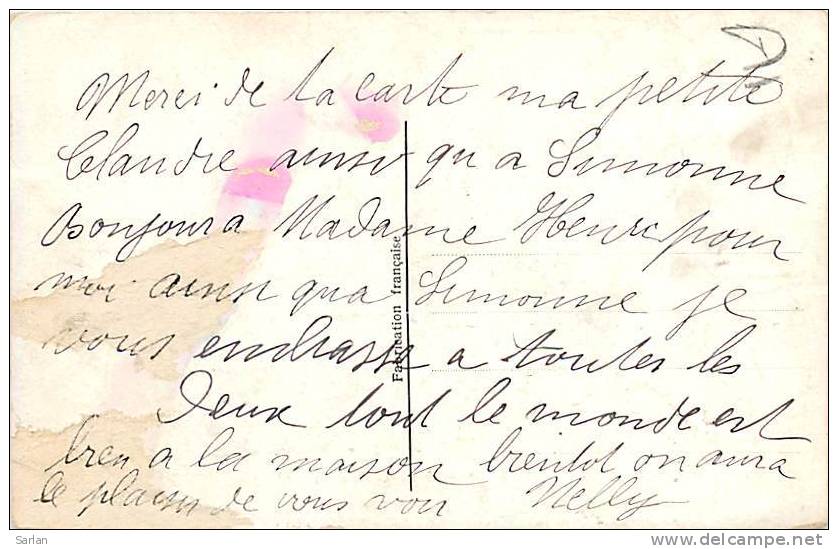 Merci de la carte ma petite
Claudie ainsi qu a Simonne
Bonjour a Madame Henri pour
moi ainsi qu a Simonne je
vous embrasse a toutes les
Deux tout le monde est
bien a la maison bientot on aura
le plaisir de vous voir Nelly
Fabrication française
Sarlan
delcampe.net